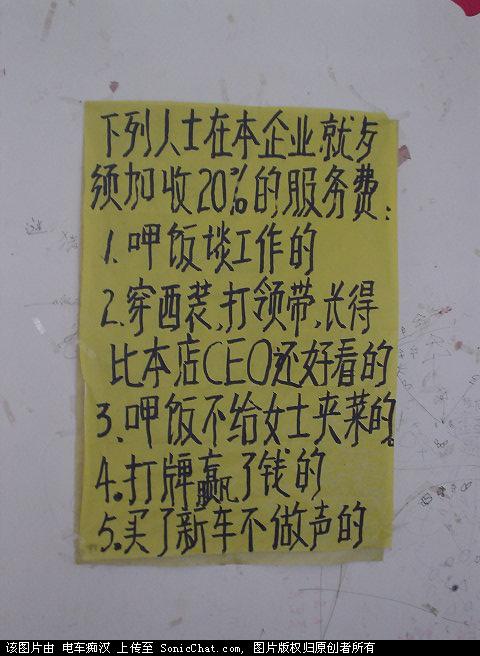 下列人士在本企业就歺
须加收20%的服务费:
1.呷饭谈工作的
2.穿西装,打领带,长得
比本店CEO还好看的
3、呷饭不给女士夹菜的。
4.打牌赢了钱的
5.买了新车不做声的
该图片由 电车痴汉 上传至 SonicChat.com, 图片版权归原创者所有